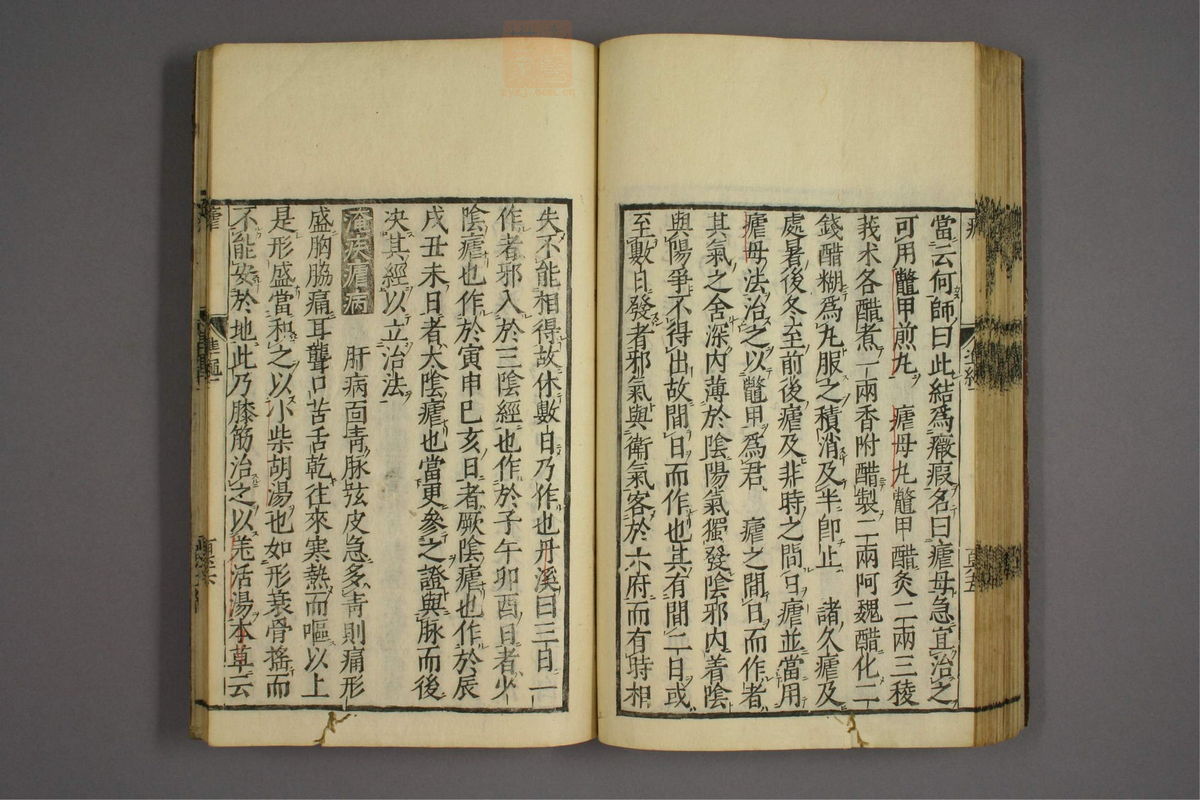 當云何師曰此結爲癥瘕名曰瘧母急宜治之
可用鼈甲煎丸　瘧母丸鼈甲醋炙二兩三稜
莪朮各醋煮一兩香附醋製二兩阿魏醋化二
錢醋糊爲丸服之積消及半卽止　諸久瘧及
處暑後冬至前後瘧及非時之間日瘧並當用
瘧母法治之以鼈甲爲君　瘧之間日而作者
其氣之舍深內薄於陰陽氣獨發陰邪內着陰
與陽爭不得出故間日而作也其有間二日或
至數日發者邪氣與衛氣客於六府而有時相
失不能相得故休數日乃作也丹溪曰三日一
作者邪入於三陰經也作於子午卯酉日者少
陰瘧也作於寅申巳亥日者厥陰瘧也作於辰
戌丑未日者太陰瘧也當更參之證與脉而後
决其經以立治法
淹疾瘧病　肝病面靑脉弦皮急多靑則痛形
盛胸脇痛耳聾口苦舌乾往來寒熱而嘔以上
是形盛當和之以小柴胡湯也如形衰骨搖而
不能安於地此乃膝筋治之以羌活湯本草云